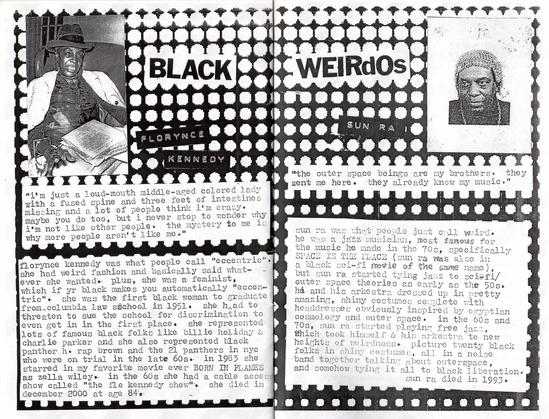 BLACK
WEIRdOs
FLORYNCE
KENNEDY
SUN RA
"i'm just a loud-mouth middle-aged colored lady
with a fused spine and three feet of intestines
missing and a lot of people think i'm crazy.
maybe you do too, but i never stop to wonder why
i'm not like other people. the mystery to me is
why more people aren't like me."
florynce kennedy was what people call "eccentric".
she had weird fashion and basically said what-
ever she wanted. plus, she was a feminist,
which if yr black makes you automatically "eccen-
tric". she was the first black woman to graduate
from columbia law school in 1951. she had to
threaten to sue the school for discrimination to
even get in in the first place. she represented
lots of famous black folks like billie holiday &
charlie parker and she also represented black
panther h. rap brown and the 21 panthers in nyc
who were on trial in the late 60s. in 1983 she
starred in my favorite movie ever BORN IN FLAMES
as zella wiley. in the 60s she had a cable access
show called "the flo kennedy show". she died in
december 2000 at age 84.
"the outer space beings are my brothers. they
sent me here. they already know my music."
sun ra was what people just call weird.
he was a jazz musician, most famous for
the music he made in the 70s, specifically
SPACE IS THE PLACE (sun ra was also in
a black sci-fi movie of the same name)
but sun ra started tying jazz to sci-fi/
outer space theories as early as the 50s.
he and his arkestra dressed up in pretty
amazing, shiny costumes complete with
headdress obviously inspired by egyptian
cosmology and outer space. in the 60s and
70s, sun ra started playing free jazz,
which took himself & his arkestra to new
heights of weirdness. picture twenty black
folks in shiny costumes, all in a noise
band together talking about outerspace,
and somehow tying it all to black liberation.
sun ra died in 1993.